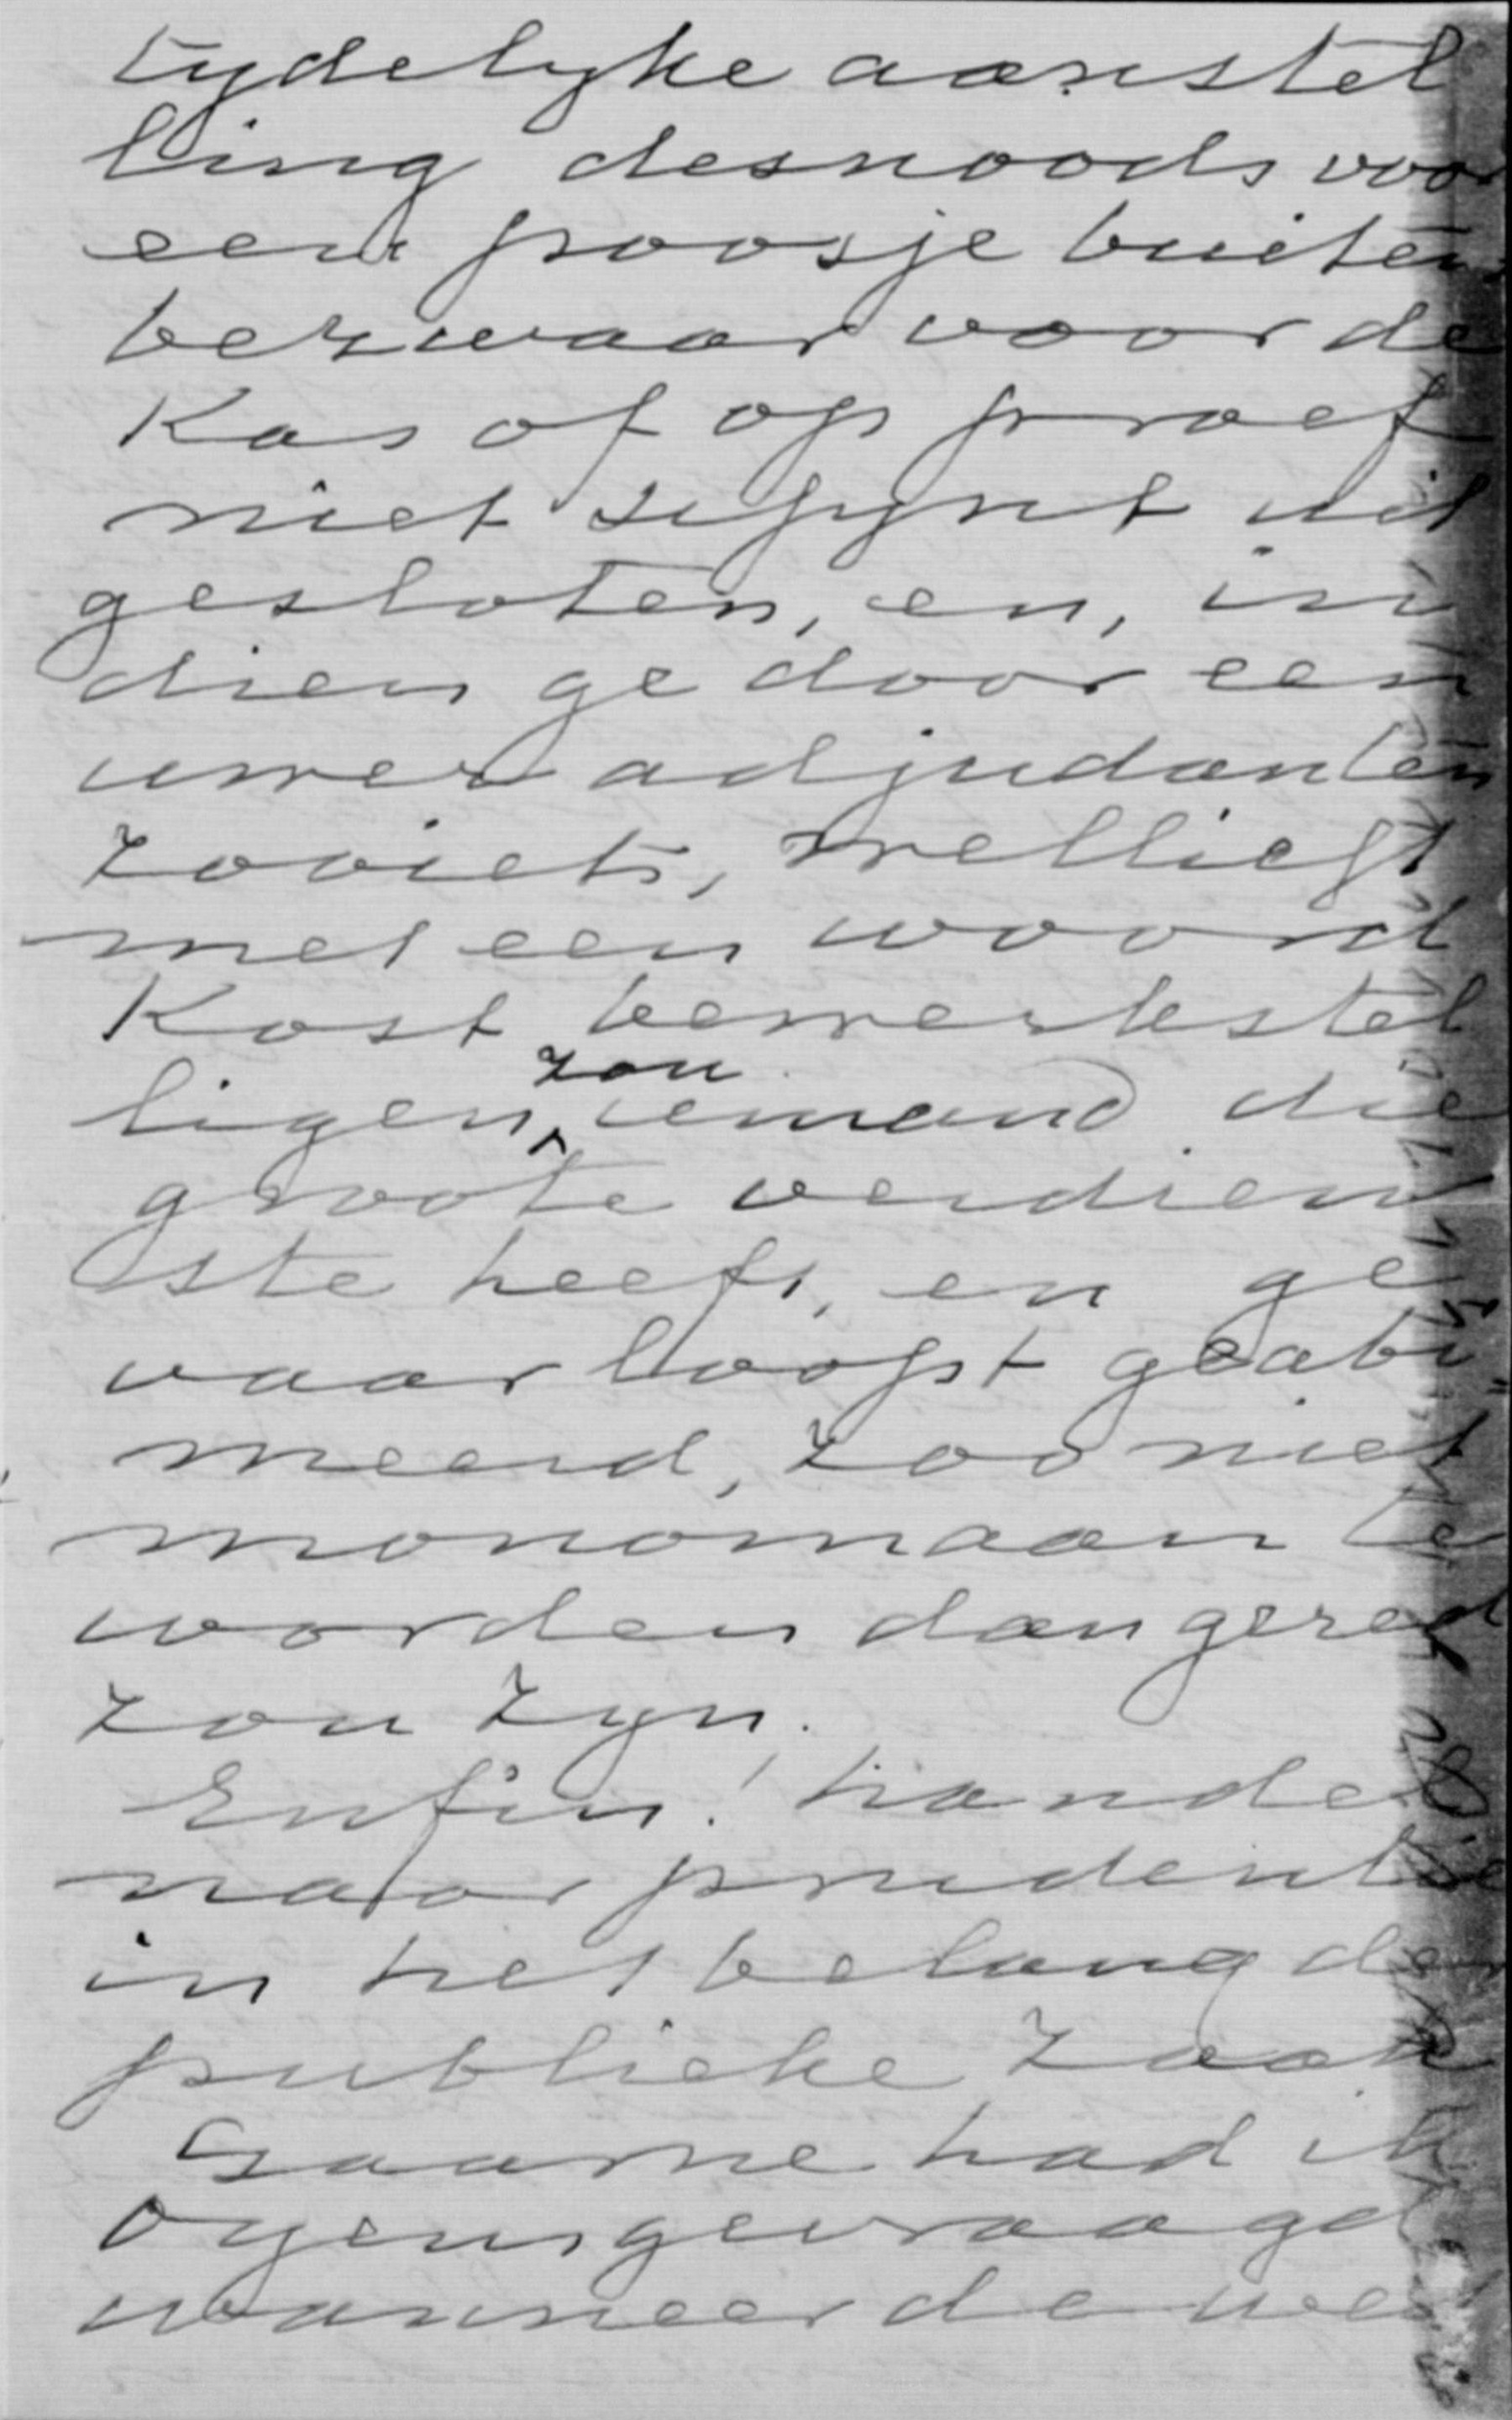 tydelyke aanstel
ling desnoods voor
een poosje buiten
bezwaar voor de
Kas of op proef
niet schynt uit
gesloten, en, in
dien ge door een
uwer adjudanten
zooiets, wellicht
met een woord
Kost bewerkstel
ligen, zou iemand die
groote verdien
ste heeft, en ge
vaar loopt geabi
meerd, zoo niet
monomaan te
worden dan gered
zou zyn.
Enfin! handel
naar prudentie
in het belang der
publieke zaak
Gaarne had ik
Oyens gevraagd
wanneer de